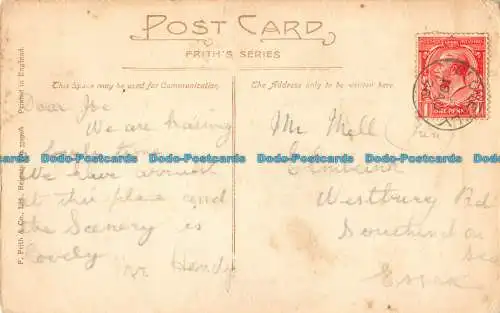 POST CARD
FRITH'S SERIES
This Space may be used for Communication.
The Address only to be written here.
F. Frith & Co., Ltd., Reigate
Printed in England.
Dear Joe
We are having
time
We have arrived
at this place and
the Scenery is
lovely
Mr Mell
Westbury Rd
Southend on
Sea
Essex
ONE PENNY
Postcards-Postcards
Postcards-Postcards
Postcards-Postcards